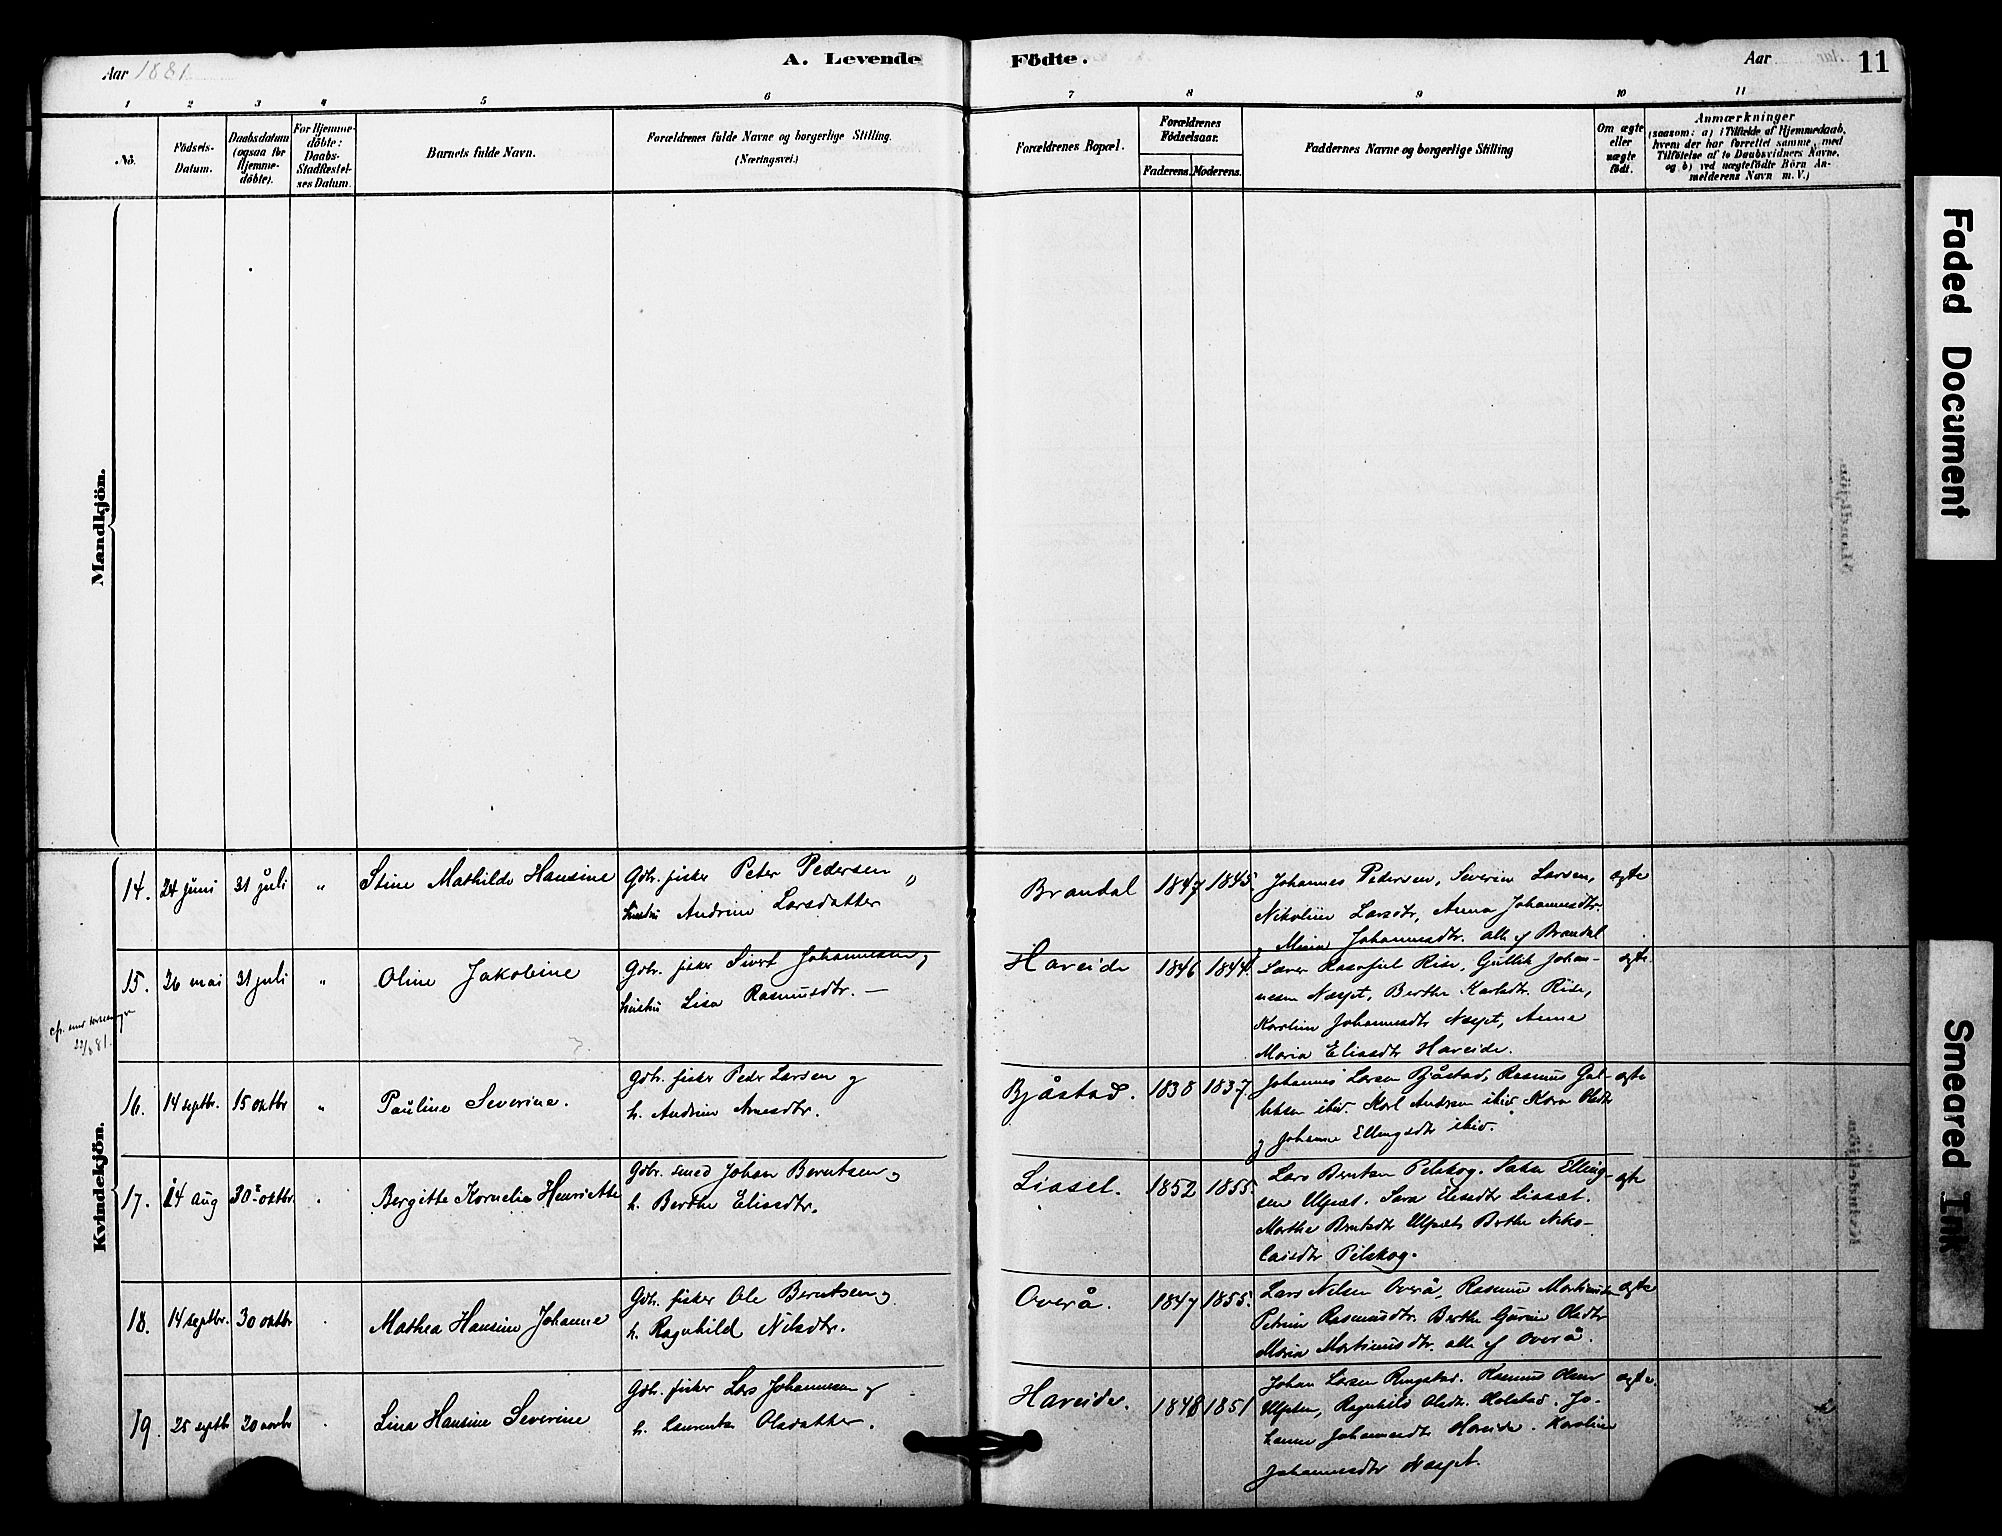 Aar 1881
A. Levende
Födte.
Aar
11
1 2 3 4 5 6 7 8 9 10 11
No.
Födsels-
Datum.
Daabsdatum
(ogsaa for
Hjemme-
döbte).
For Hjemme-
döbte:
Daabs-
Stadfæstel-
ses Datum.
Barnets fulde Navn.
Forældrenes fulde Navne og borgerlige Stilling.
(Næringsvei.)
Forældrenes Bopæl.
Forældrenes
Födselsaar.
Faderens. Moderens.
Faddernes Navne og borgerlige Stilling
Om ægte
eller
uægte
födt.
Anmærkninger
(saasom: a) i Tilfælde af Hjemmedaab,
hvem der har forrettet samme, med
Tilföielse af to Daabsvidners Navne,
og b) ved uægtefödte Börn An-
melderens Navn m. V.)
Mandkjön.
Kvindekjön.
14. 24 juni 31 juli " Stine Mathilde Hansine
Gbr. fisker Peter Pedersen "
hustru Andrine Larsdatter
Brandal 1847 1845.
Johannes Pedersen, Severin Larsen,
Nikoline Larsdtr, Anna Johannesdtr.
g Maria Johannesdtr. alle af Brandal
ægte
15. 26 mai 31 juli " Oline Jakobine
Gbr. fisker Sivert Johannesen g
hustru Lisa Rasmusdtr. —
Hareide 1846 1844.
Rise, Gullik Johan-
nesen Næset, Berthe Karlsdtr. Rise,
Karoline Johannesdtr Næset, Anna
Maria Eliasdtr Hareide.
ægte.
22/8 81.
16. 14 septbr. 15 oktbr " Pauline Severine.
Gbr. fisker Peder Larsen g
h. Andrine Arnesdtr.
Bjåstad. 1838 1837.
Johannes Larsen Bjåstad, Rasmus Gul-
ibid. Karl Andrsen ibid. Olsdtr
g Johanne Ellingsdtr ibid.
ægte
17. 14 aug 30 oktbr " Bergitte Kornelia Henriette
Gbr. smed Johan Berntsen g
h. Berthe Eliasdtr.
Liaset. 1852 1855.
Lars Berntsen Pilskog. Elling-
sen Ulset. Sara Eliasdtr Liaset.
Marthe Berntsdtr Ulset, Berthe Niko-
laisdtr Pilskog.
ægte
18. 14 septbr. 30 oktbr . Mathea Hansine Johanne
Gbr. fisker Ole Berntsen g
h. Ragnhild Nilsdtr.
Overå. 1847 1855.
Lars Nilsen Overå, Rasmus Martinusen
Petrine Rasmusdtr. Berthe Gurine Olsdtr
Maria Martinusdtr. alle af Overå.
ægte
19. 25 septbr 20 novbr . Lina Hansine Severine
Gbr. fisker Lars Johannesen g
h. Laurentse Olsdatter.
Hareide. 1848 1851
Johan Larsen Ringstad. Rasmus Olsen
Ragnhild Olsdtr. Holstad. Jo-
hanne Johannesdtr Hareide. Karoline
Johannesdtr Næset.
ægte.
Faded Document
Smeared Ink